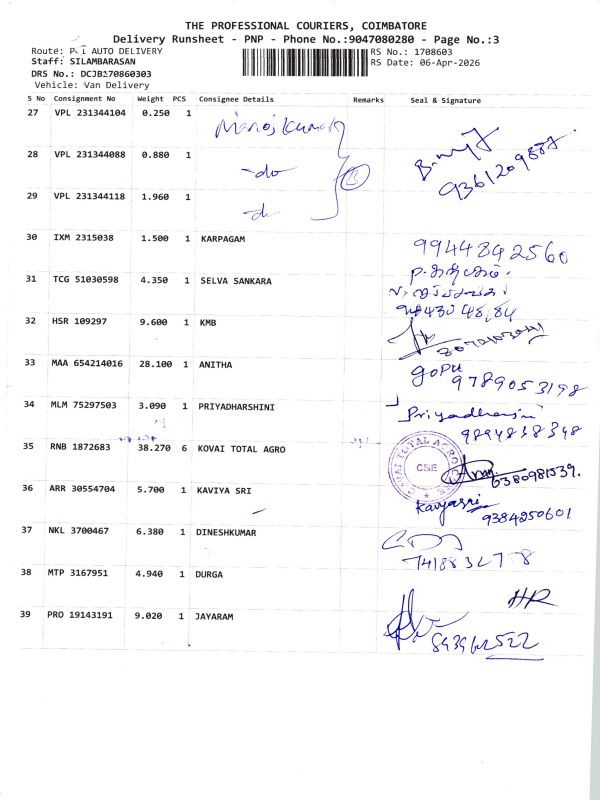 THE PROFESSIONAL COURIERS, COIMBATORE
Delivery Runsheet - PNP - Phone No.:9047080280 - Page No.:3
Route: P-1 AUTO DELIVERY RS No.: 1708603
Staff: SILAMBARASAN RS Date: 06-Apr-2026
DRS No.: DCJB170860303
Vehicle: Van Delivery
S No Consignment No Weight PCS Consignee Details Remarks Seal & Signature
27 VPL 231344104 0.250 1 Manoj Kumar
28 VPL 231344088 0.880 1 -do 3
29 VPL 231344118 1.960 1
30 IXM 2315038 1.500 1 KARPAGAM 9944842560
31 TCG 51030598 4.350 1 SELVA SANKARA
32 HSR 109297 9.600 1 KMB
33 MAA 654214016 28.100 1 ANITHA GOPU 9789053198
34 MLM 75297503 3.090 1 PRIYADHARSHINI Priyadharsini
9894838348
35 RNB 1872683 38.270 6 KOVAI TOTAL AGRO KOVAI TOTAL AGRO CSE 6380981539.
36 ARR 30554704 5.700 1 KAVIYA SRI Kavyasri
9384250601
37 NKL 3700467 6.380 1 DINESHKUMAR
38 MTP 3167951 4.940 1 DURGA HR
39 PRO 19143191 9.020 1 JAYARAM